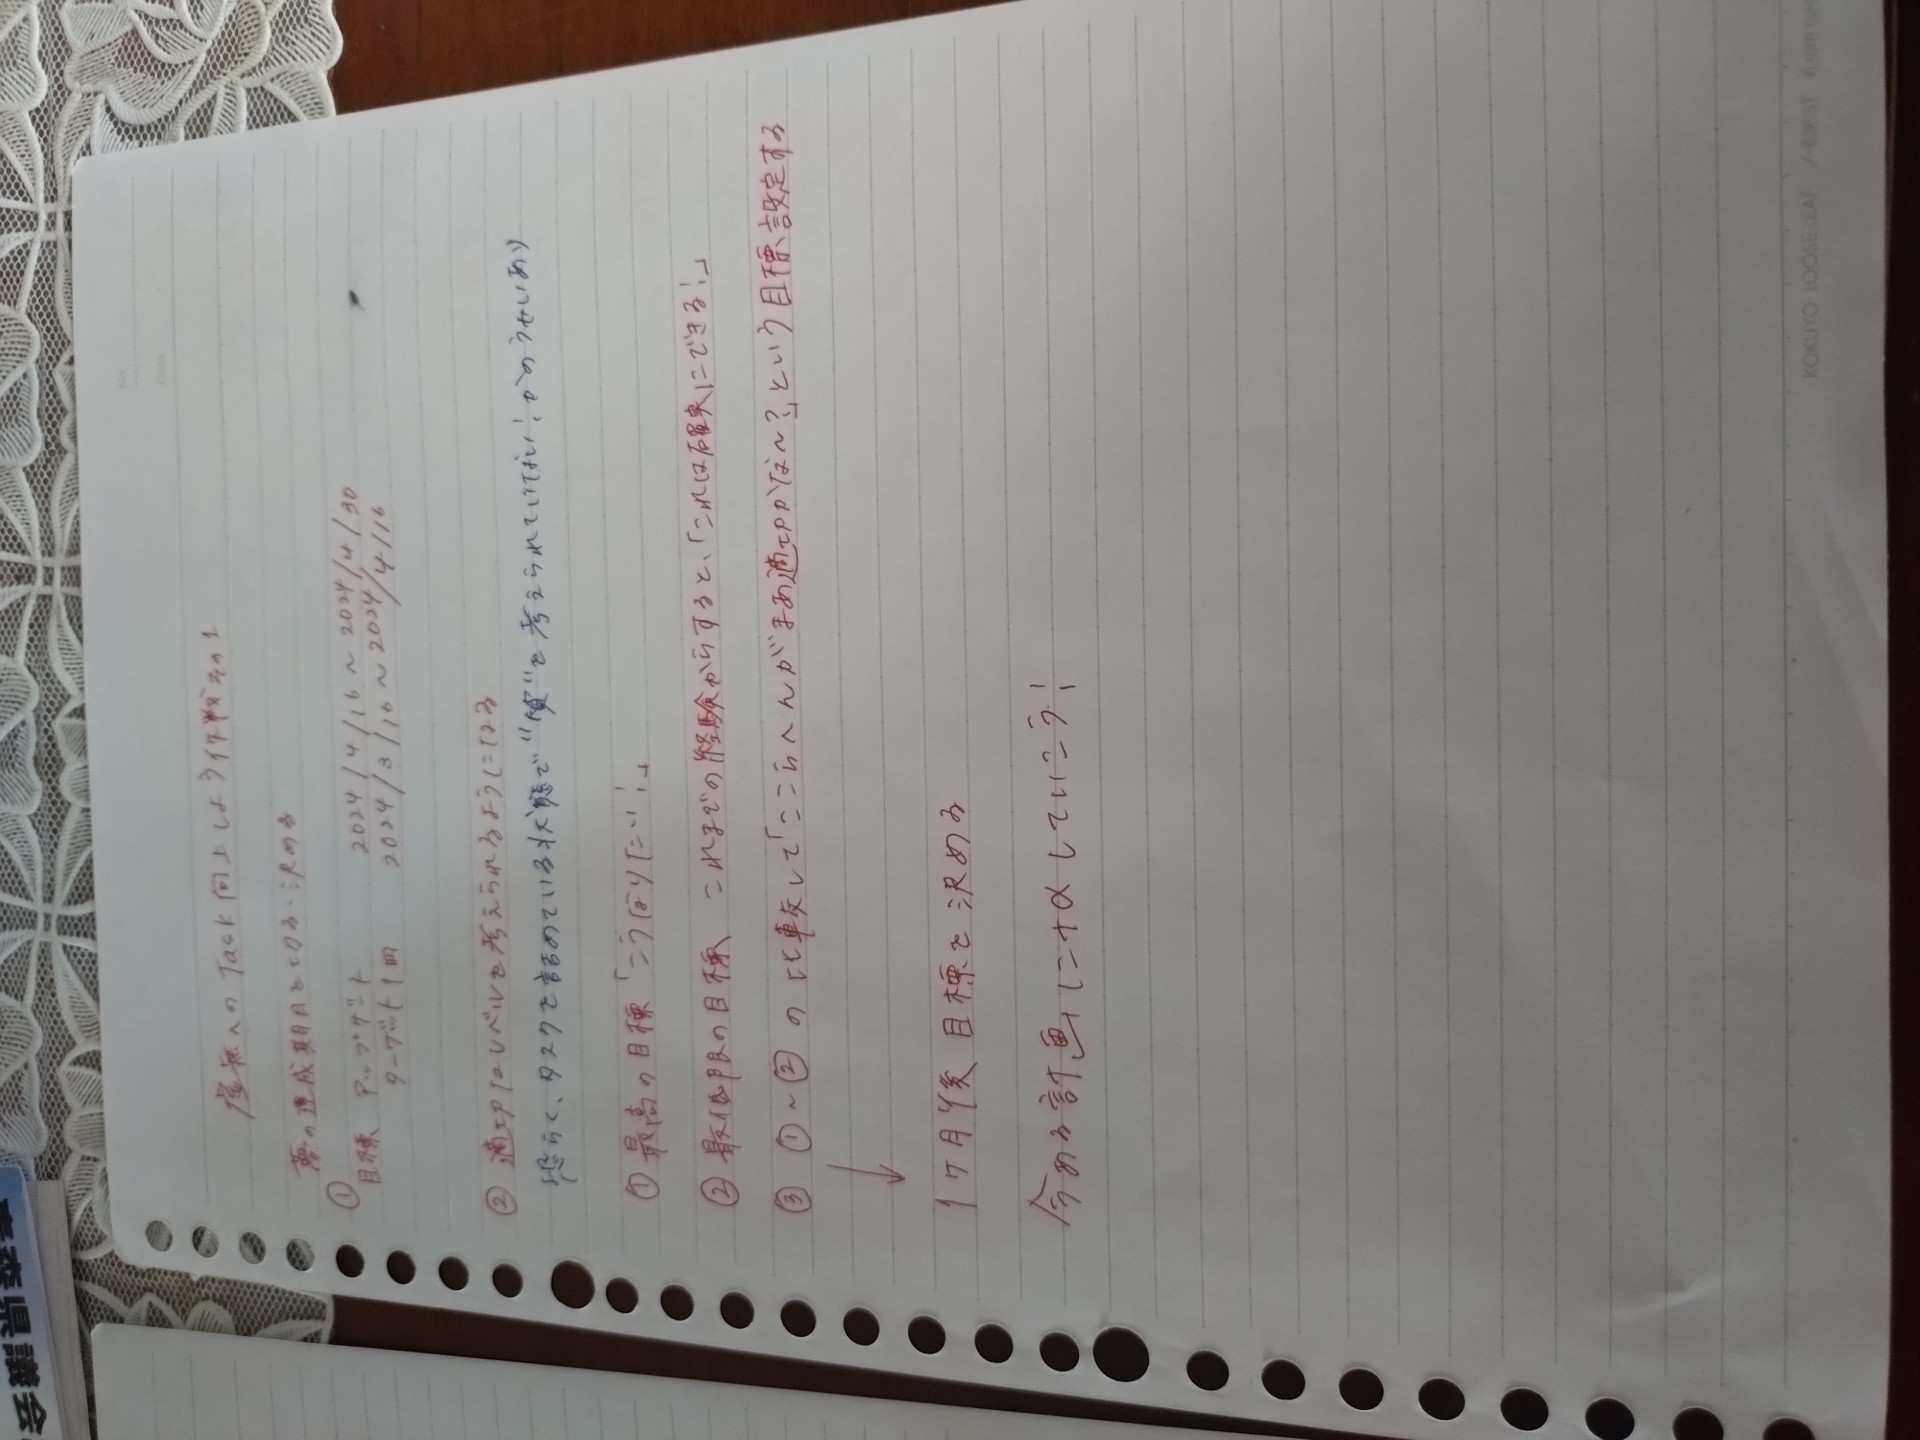 No.
Date
への Task 向上しよう その1
夢の達成期日を決める
①
目標 アップデート 2024/4/16 ~ 2024/4/30
ターゲット1回 2024/3/16 ~ 2024/4/16
② 適エPなレベルを考えられるようになる
恐らく、タスクを詰めている状態で"質"を考えられていない!かのうせいあり
① 最高の目標 「こうなりたい!」
② 最低限の目標 これまでの経験からすると、「これは確実にできる!」
③ ①~②の比較して「ここらへんがまあ適エPPかな~?」という目標設定する
↓
1ヶ月後目標を決める
今ある計画に+αしていこう!
KOKUYO LOOSE-LEAF
県議会